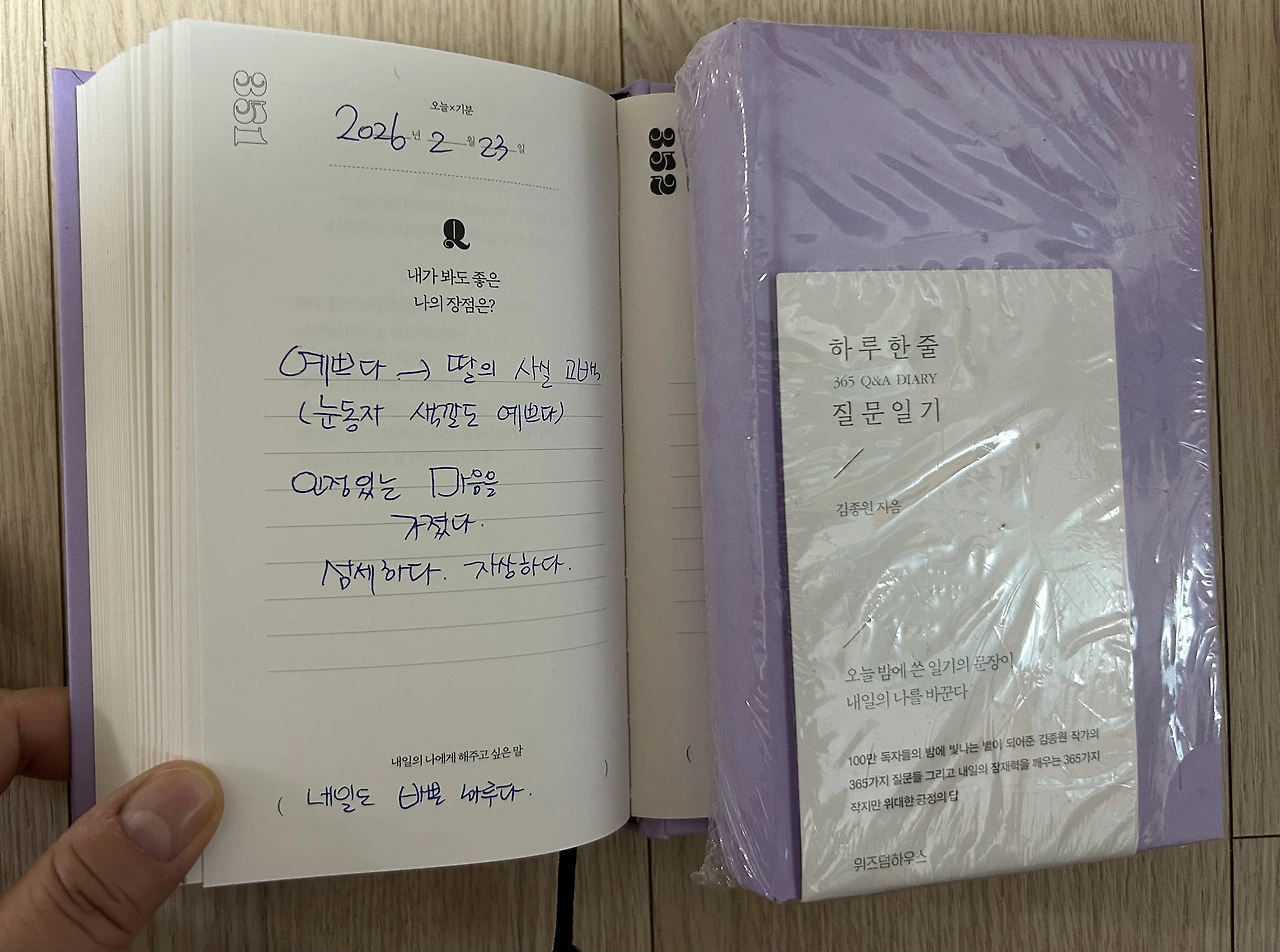 351
오늘×기분
2026년 2월 23일
Q
내가 봐도 좋은
나의 장점은?
예쁘다 → 딸의 사실 고백
(눈동자 색깔도 예쁘다)
인정있는 마음을
가졌다.
섬세하다. 자상하다.
내일의 나에게 해주고 싶은 말
( 내일도 바쁜 하루다. )
352
(
하루한줄
365 Q&A DIARY
질문일기
김종원 지음
오늘 밤에 쓴 일기의 문장이
내일의 나를 바꾼다
100만 독자들의 밤에 빛나는 별이 되어준 김종원 작가의
365가지 질문들 그리고 내일의 잠재력을 깨우는 365가지
작지만 위대한 긍정의 답
위즈덤하우스